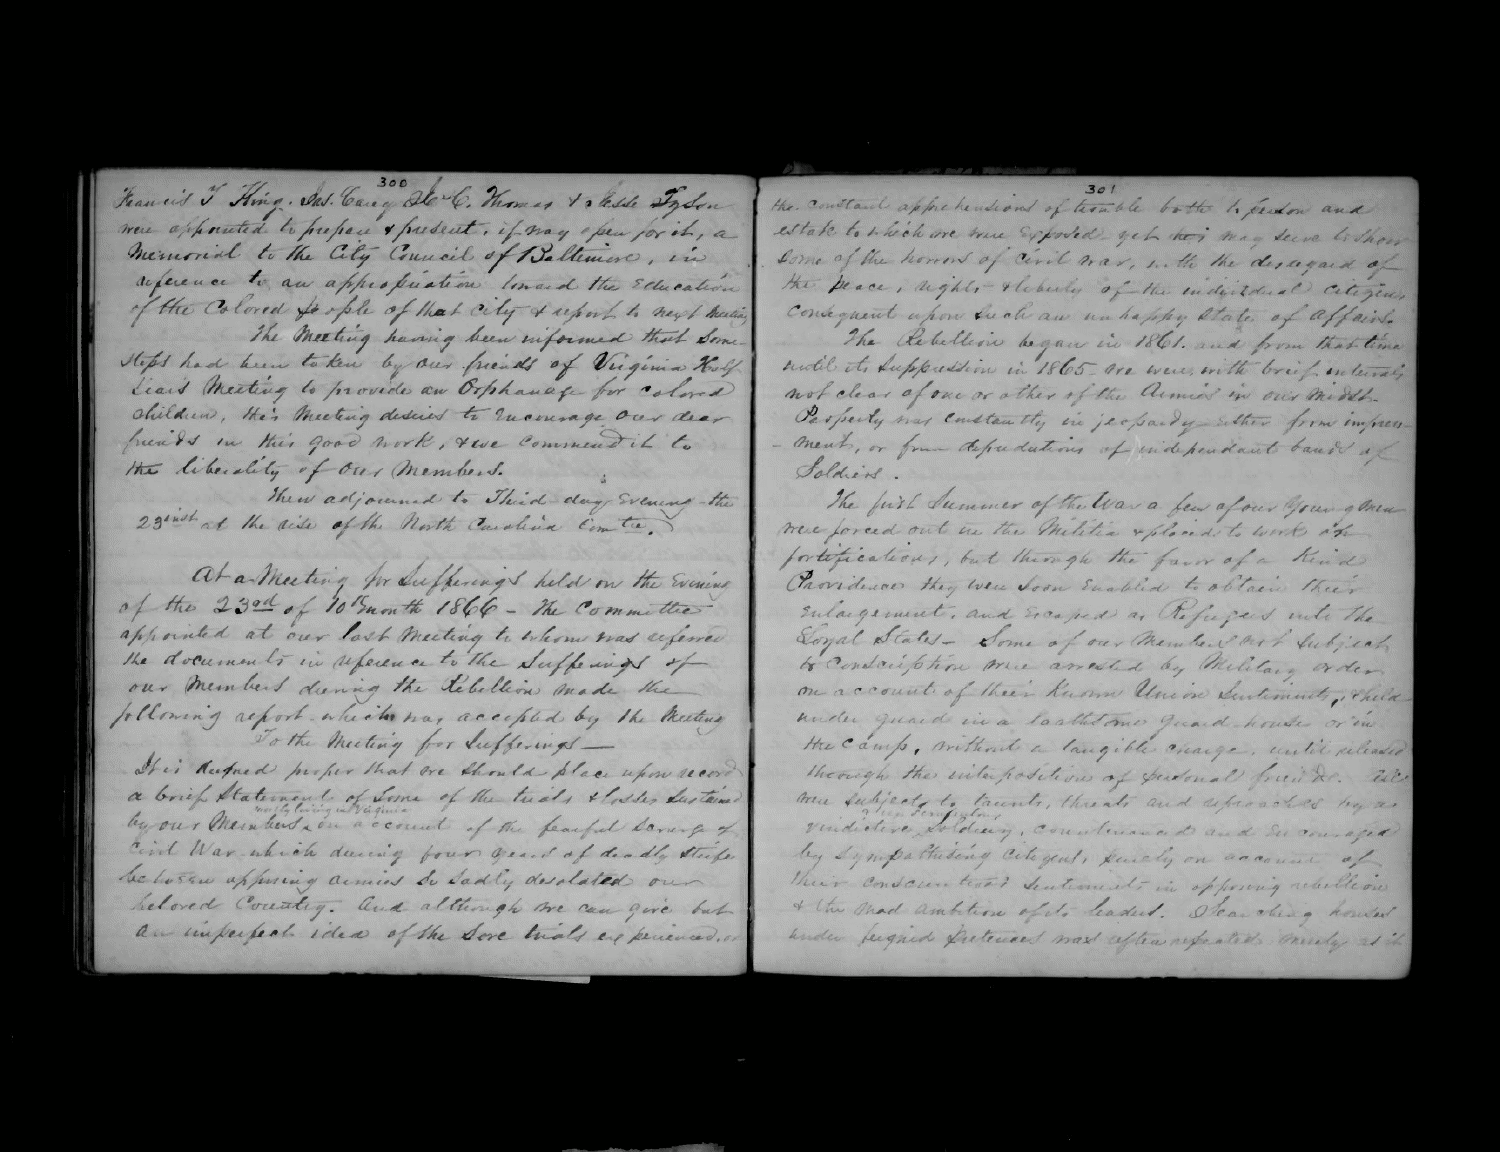 300
Francis T King. Jas. Carey Jas C. Thomas & Jesse Tyson
were appointed to prepare & present, if way open for it, a
Memorial to the City Council of Baltimore, in
reference to an appropriation toward the Education
of the Colored people of that City & report to next Meeting
The Meeting having been informed that some
steps had been taken by our friends of Virginia Half
Years Meeting to provide an Orphanage for colored
children, this Meeting desires to encourage our dear
friends in this good work, & we commend it to
the liberality of our Members.
Then adjourned to Third day Evening the
23 inst at the rise of the North Carolina Comtee.
At a Meeting for Sufferings held on the Evening
of the 23rd of 10th month 1866 - The Committee
appointed at our last Meeting to whom was referred
the documents in reference to the Sufferings of
our Members during the Rebellion made the
following report which was accepted by the Meeting
To the Meeting for Sufferings —
It is deemed proper that we should place upon record
a brief Statement of some of the trials & losses sustained
mostly living in Virginia
by our Members on account of the fearful scourge of
Civil War which during four years of deadly strife
between opposing armies so sadly desolated our
beloved Country. And although we can give but
an imperfect idea of the sore trials experienced, or
301
the constant apprehensions of trouble both to person and
estate to which we were exposed yet this may serve to show
some of the horrors of civil war, with the disregard of
the peace, rights & liberty of the individual citizens
consequent upon such an unhappy state of affairs.
The Rebellion began in 1861. and from that time
until its suppression in 1865 we were, with brief intervals
not clear of one or other of the Armies in our midst.
Property was constantly in jeopardy either from impress-
- ment, or from depredations of independant bands of
Soldiers.
The first Summer of the War a few of our young men
were forced out in the Militia & placed to work on
fortifications, but through the favor of a Kind
Providence they were soon enabled to obtain their
enlargement, and escaped as Refugees into the
Loyal States - Some of our Members not subject
to Conscription were arrested by Military order
on account of their known Union Sentiments, & held
under guard in a loathsome guard house or in
the camp, without a tangible charge, until released
through the interposition of personal friends. We
were subject to taunts, threats and reproaches by a
vindictive Soldiery, countenanced and encouraged
by sympathising citizens, purely on account of
their conscientious sentiments in opposing rebellion
& the mad ambition of its leaders. Searching houses
under feigned pretences was often repeated merely as it